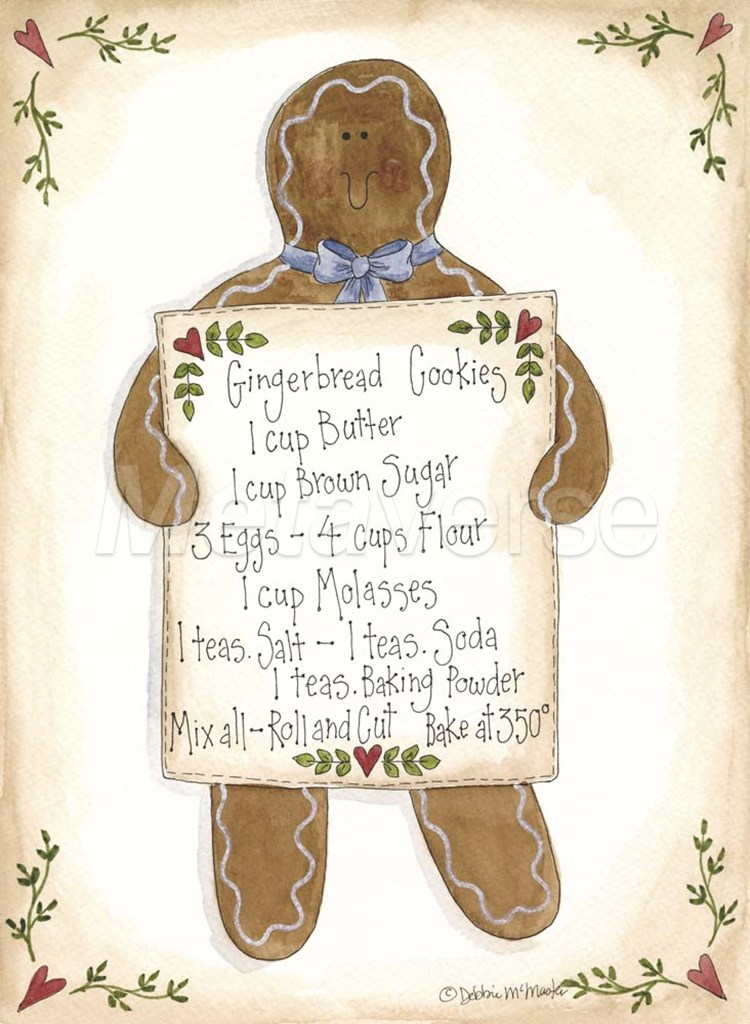 Gingerbread Cookies
1 cup Butter
1 cup Brown Sugar
3 Eggs - 4 cups Flour
1 cup Molasses
1 teas. Salt - 1 teas. Soda
1 teas. Baking Powder
Mix all - Roll and Cut Bake at 350°
Metaverse
© Debbie McMaster